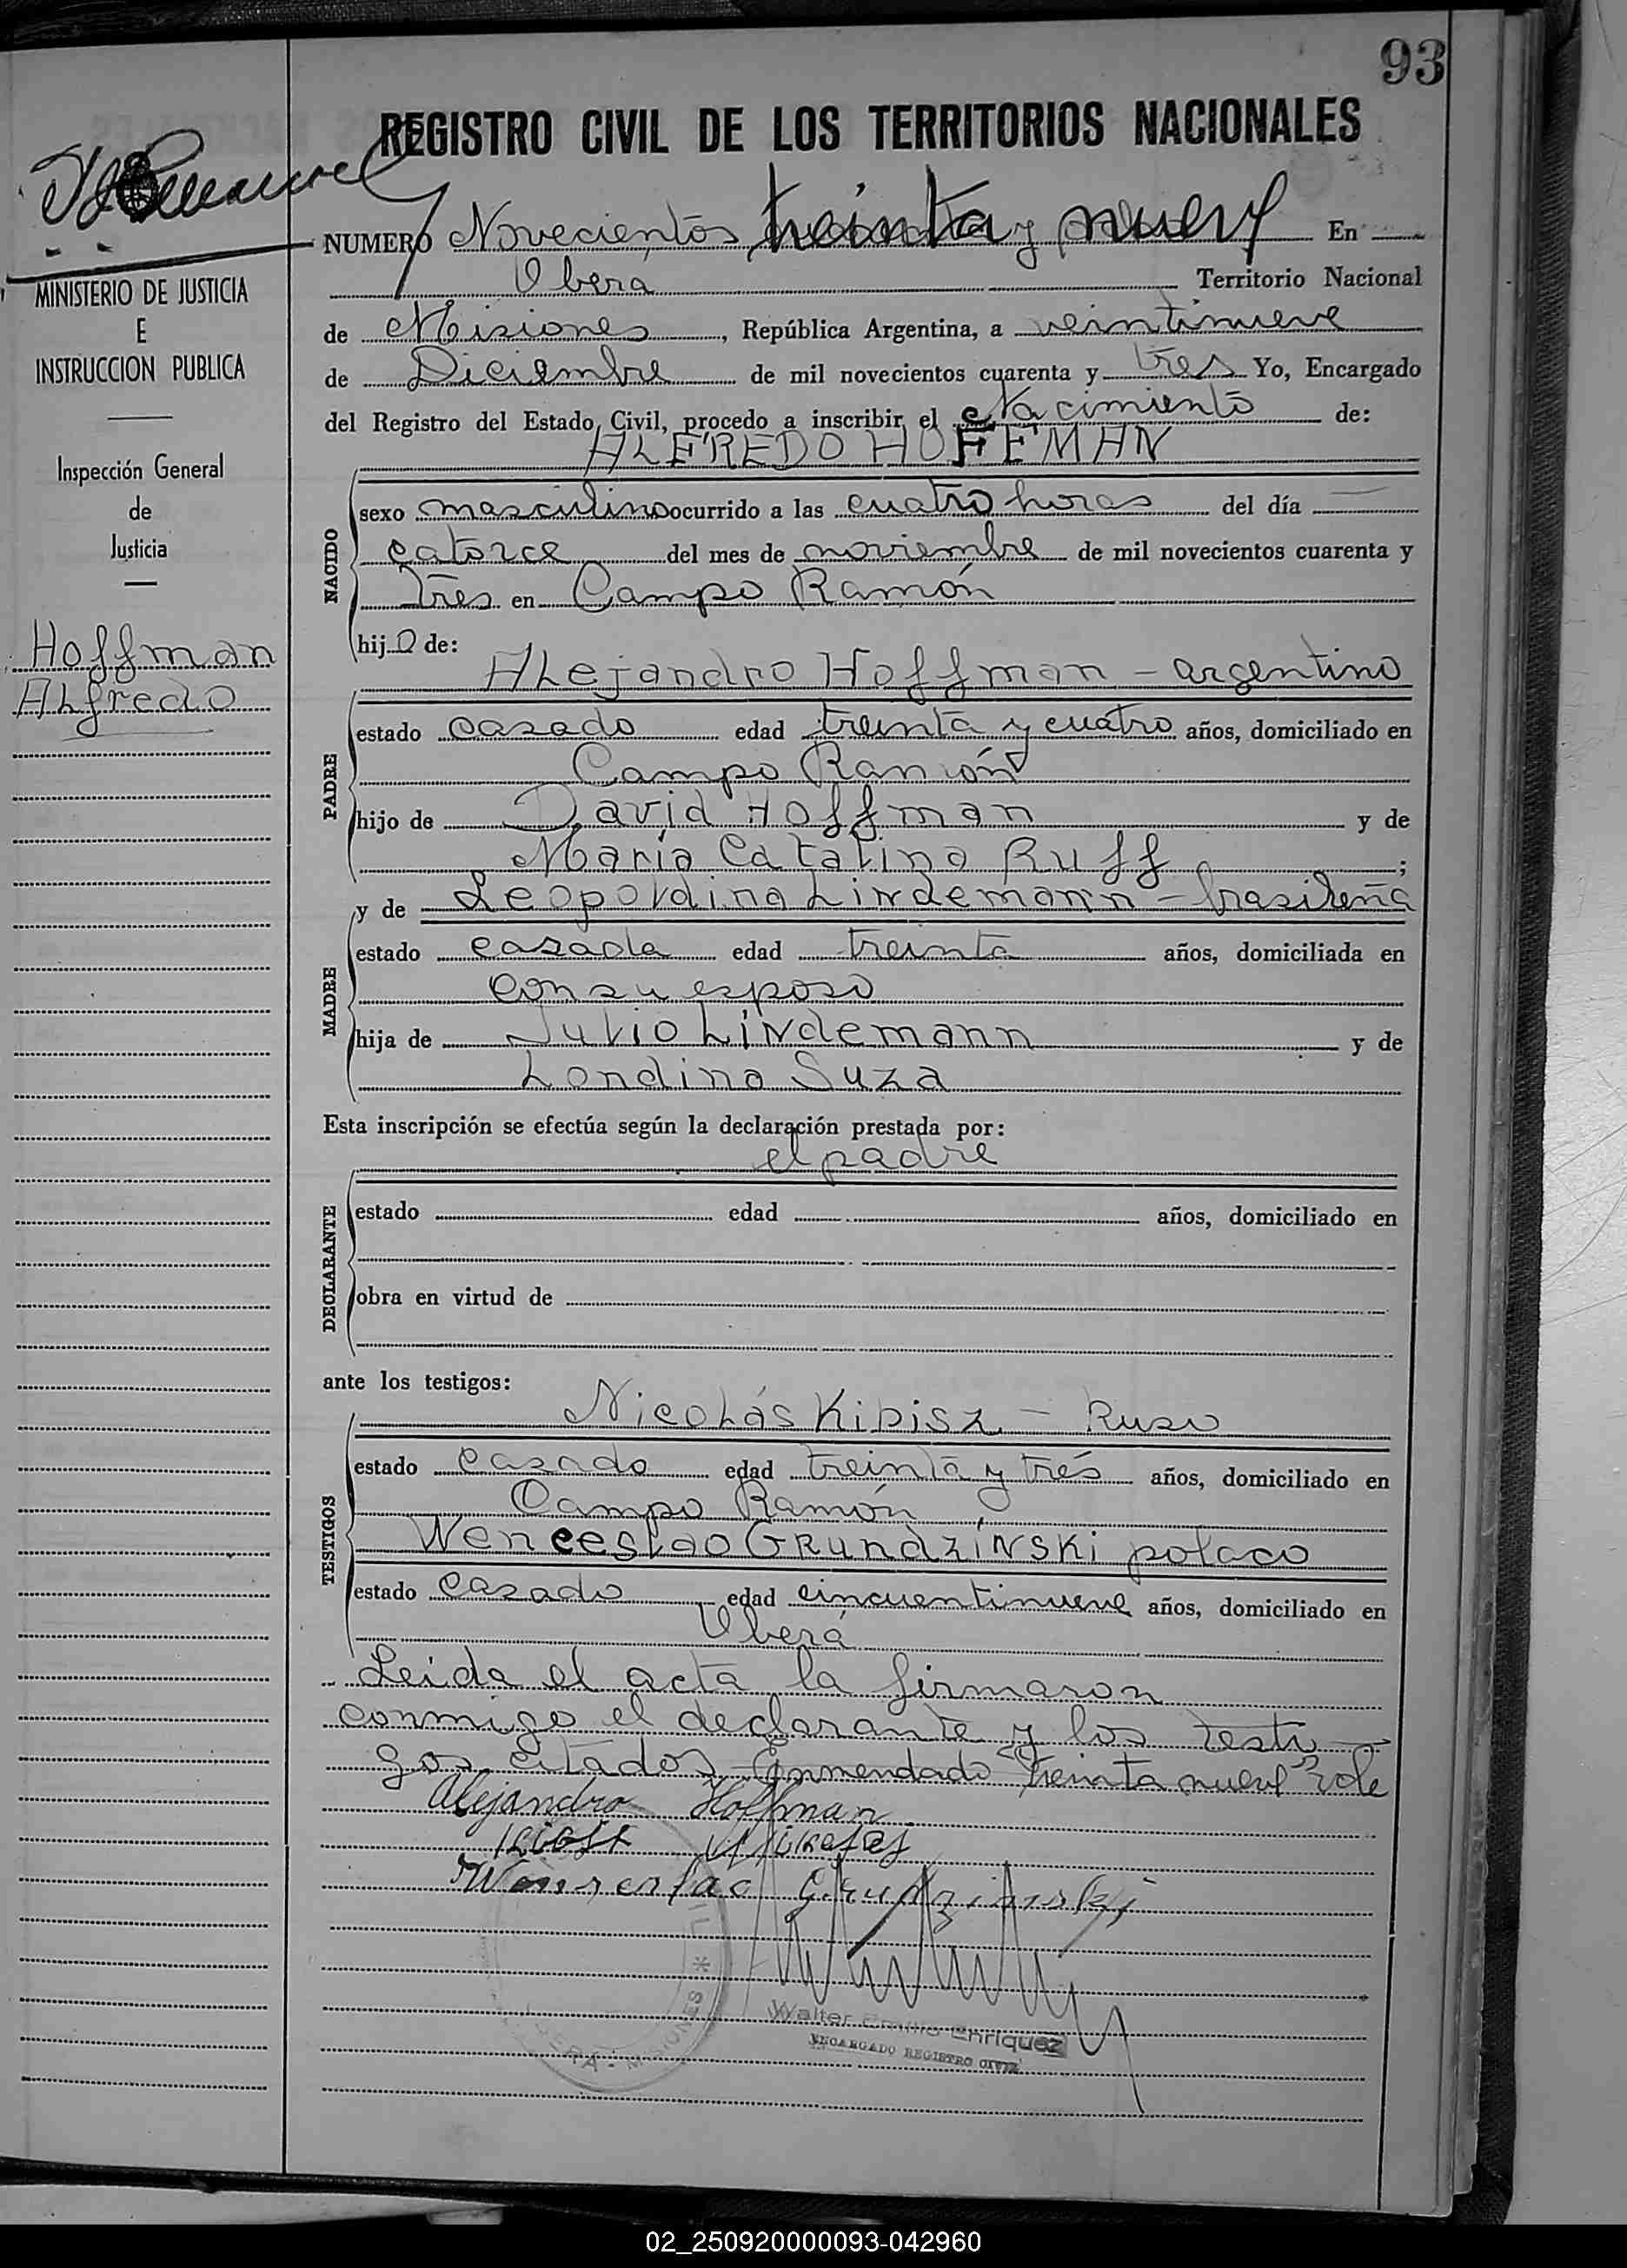 93
REGISTRO CIVIL DE LOS TERRITORIOS NACIONALES
NUMERO Novecientos treinta y nueve En
Obera Territorio Nacional
de Misiones, República Argentina, a veintinueve
de Diciembre de mil novecientos cuarenta y tres Yo, Encargado
del Registro del Estado Civil, procedo a inscribir el Nacimiento de:
ALFREDO HOFFMAN
NACIDO
sexo masculino ocurrido a las cuatro horas del día
catorce del mes de noviembre de mil novecientos cuarenta y
Tres en Campo Ramón
hijo de:
Alejandro Hoffman - argentino
PADRE
estado casado edad treinta y cuatro años, domiciliado en
Campo Ramón
hijo de David Hoffman y de
María Catalina Ruff ;
y de Leopoldina Lindemann - brasileña
MADRE
estado casada edad treinta años, domiciliada en
con su esposo
hija de Julio Lindemann y de
Londina Suza
Esta inscripción se efectúa según la declaración prestada por:
el padre
DECLARANTE
estado edad años, domiciliado en
obra en virtud de
ante los testigos:
Nicolás Kibisz - Ruso
TESTIGOS
estado casado edad treinta y tres años, domiciliado en
Campo Ramón
Wenceslao Grundzinski polaco
estado casado edad cincuentinueve años, domiciliado en
Oberá
Leida el acta la firmaron
conmigo el declarante y los testi-
gos citados Enmendado "treinta nueve" vale
Alejandro Hoffman
Wenceslao Grudzinski
Walter Emilio Enriquez
ENCARGADO REGISTRO CIVIL
OBERA - MISIONES
MINISTERIO DE JUSTICIA
E
INSTRUCCION PUBLICA
Inspección General
de
Justicia
Hoffman
Alfredo
02_250920000093-042960